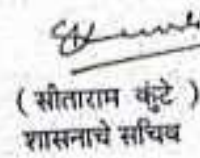 ( सीताराम कुंटे )
शासनाचे सचिव